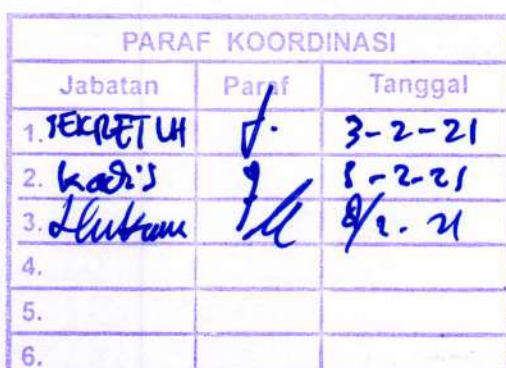 PARAF KOORDINASI
Jabatan Paraf Tanggal
1. SEKRET LH 3-2-21
2. Kadis 5-2-21
3. Hukum 8/2-21
4.
5.
6.